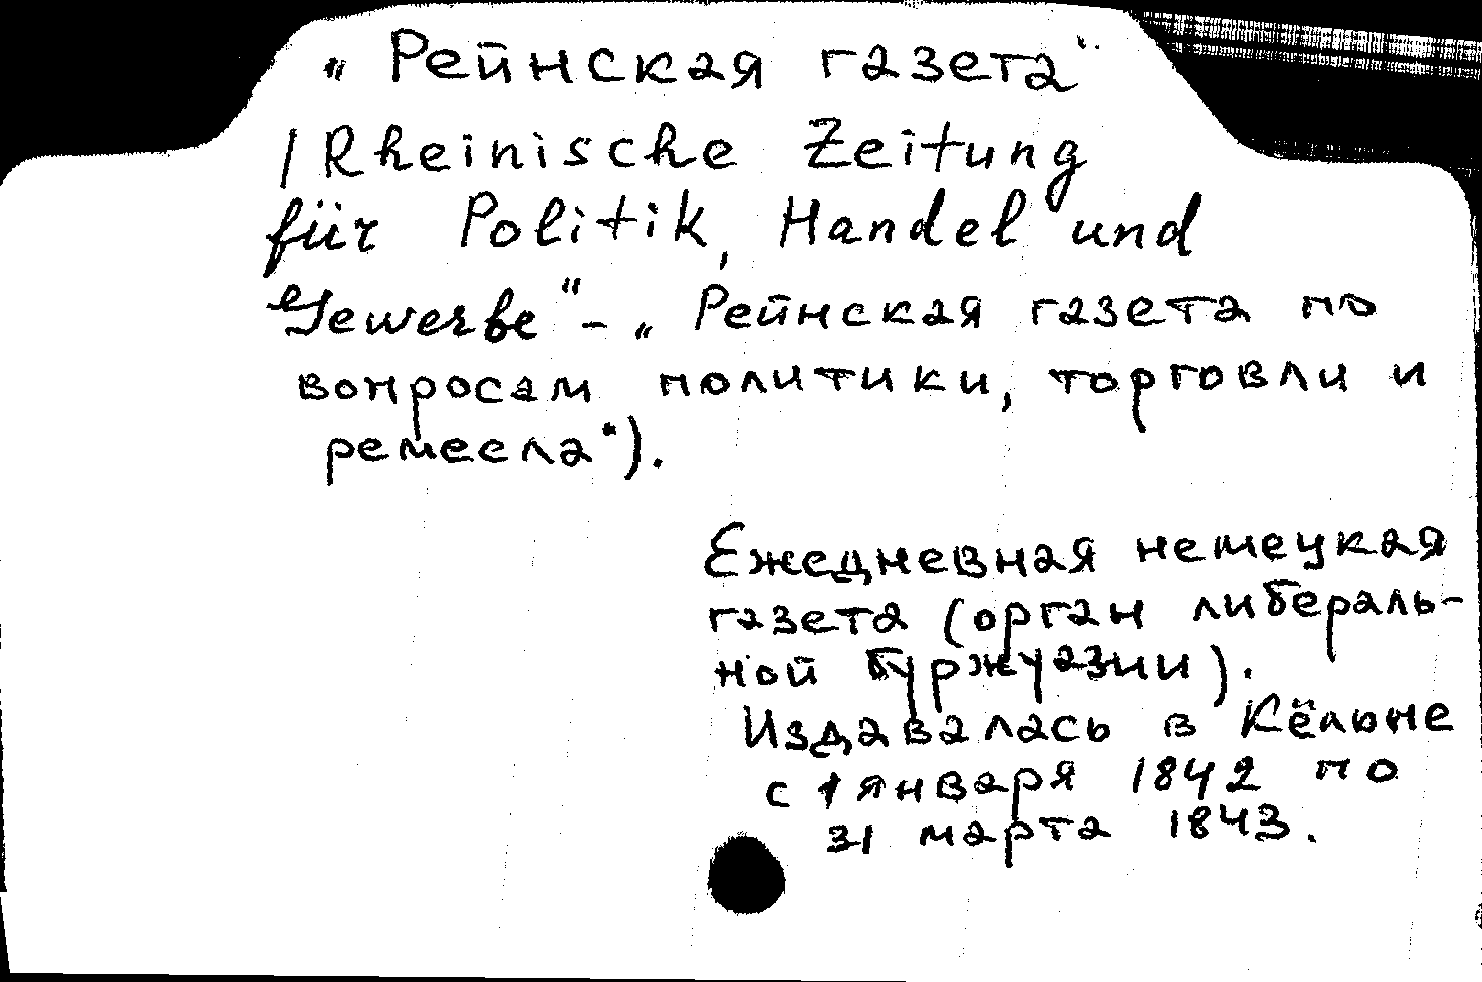 „Рейнская газета“
/Rheinische Zeitung
für Politik, Handel und
Gewerbe“ – „Рейнская газета по
вопросам политики, торговли и
ремесла“).
Ежедневная немецкая
газета (орган либераль-
ной буржуазии).
Издавалась в Кёльне
с 1 января 1842 по
31 марта 1843.